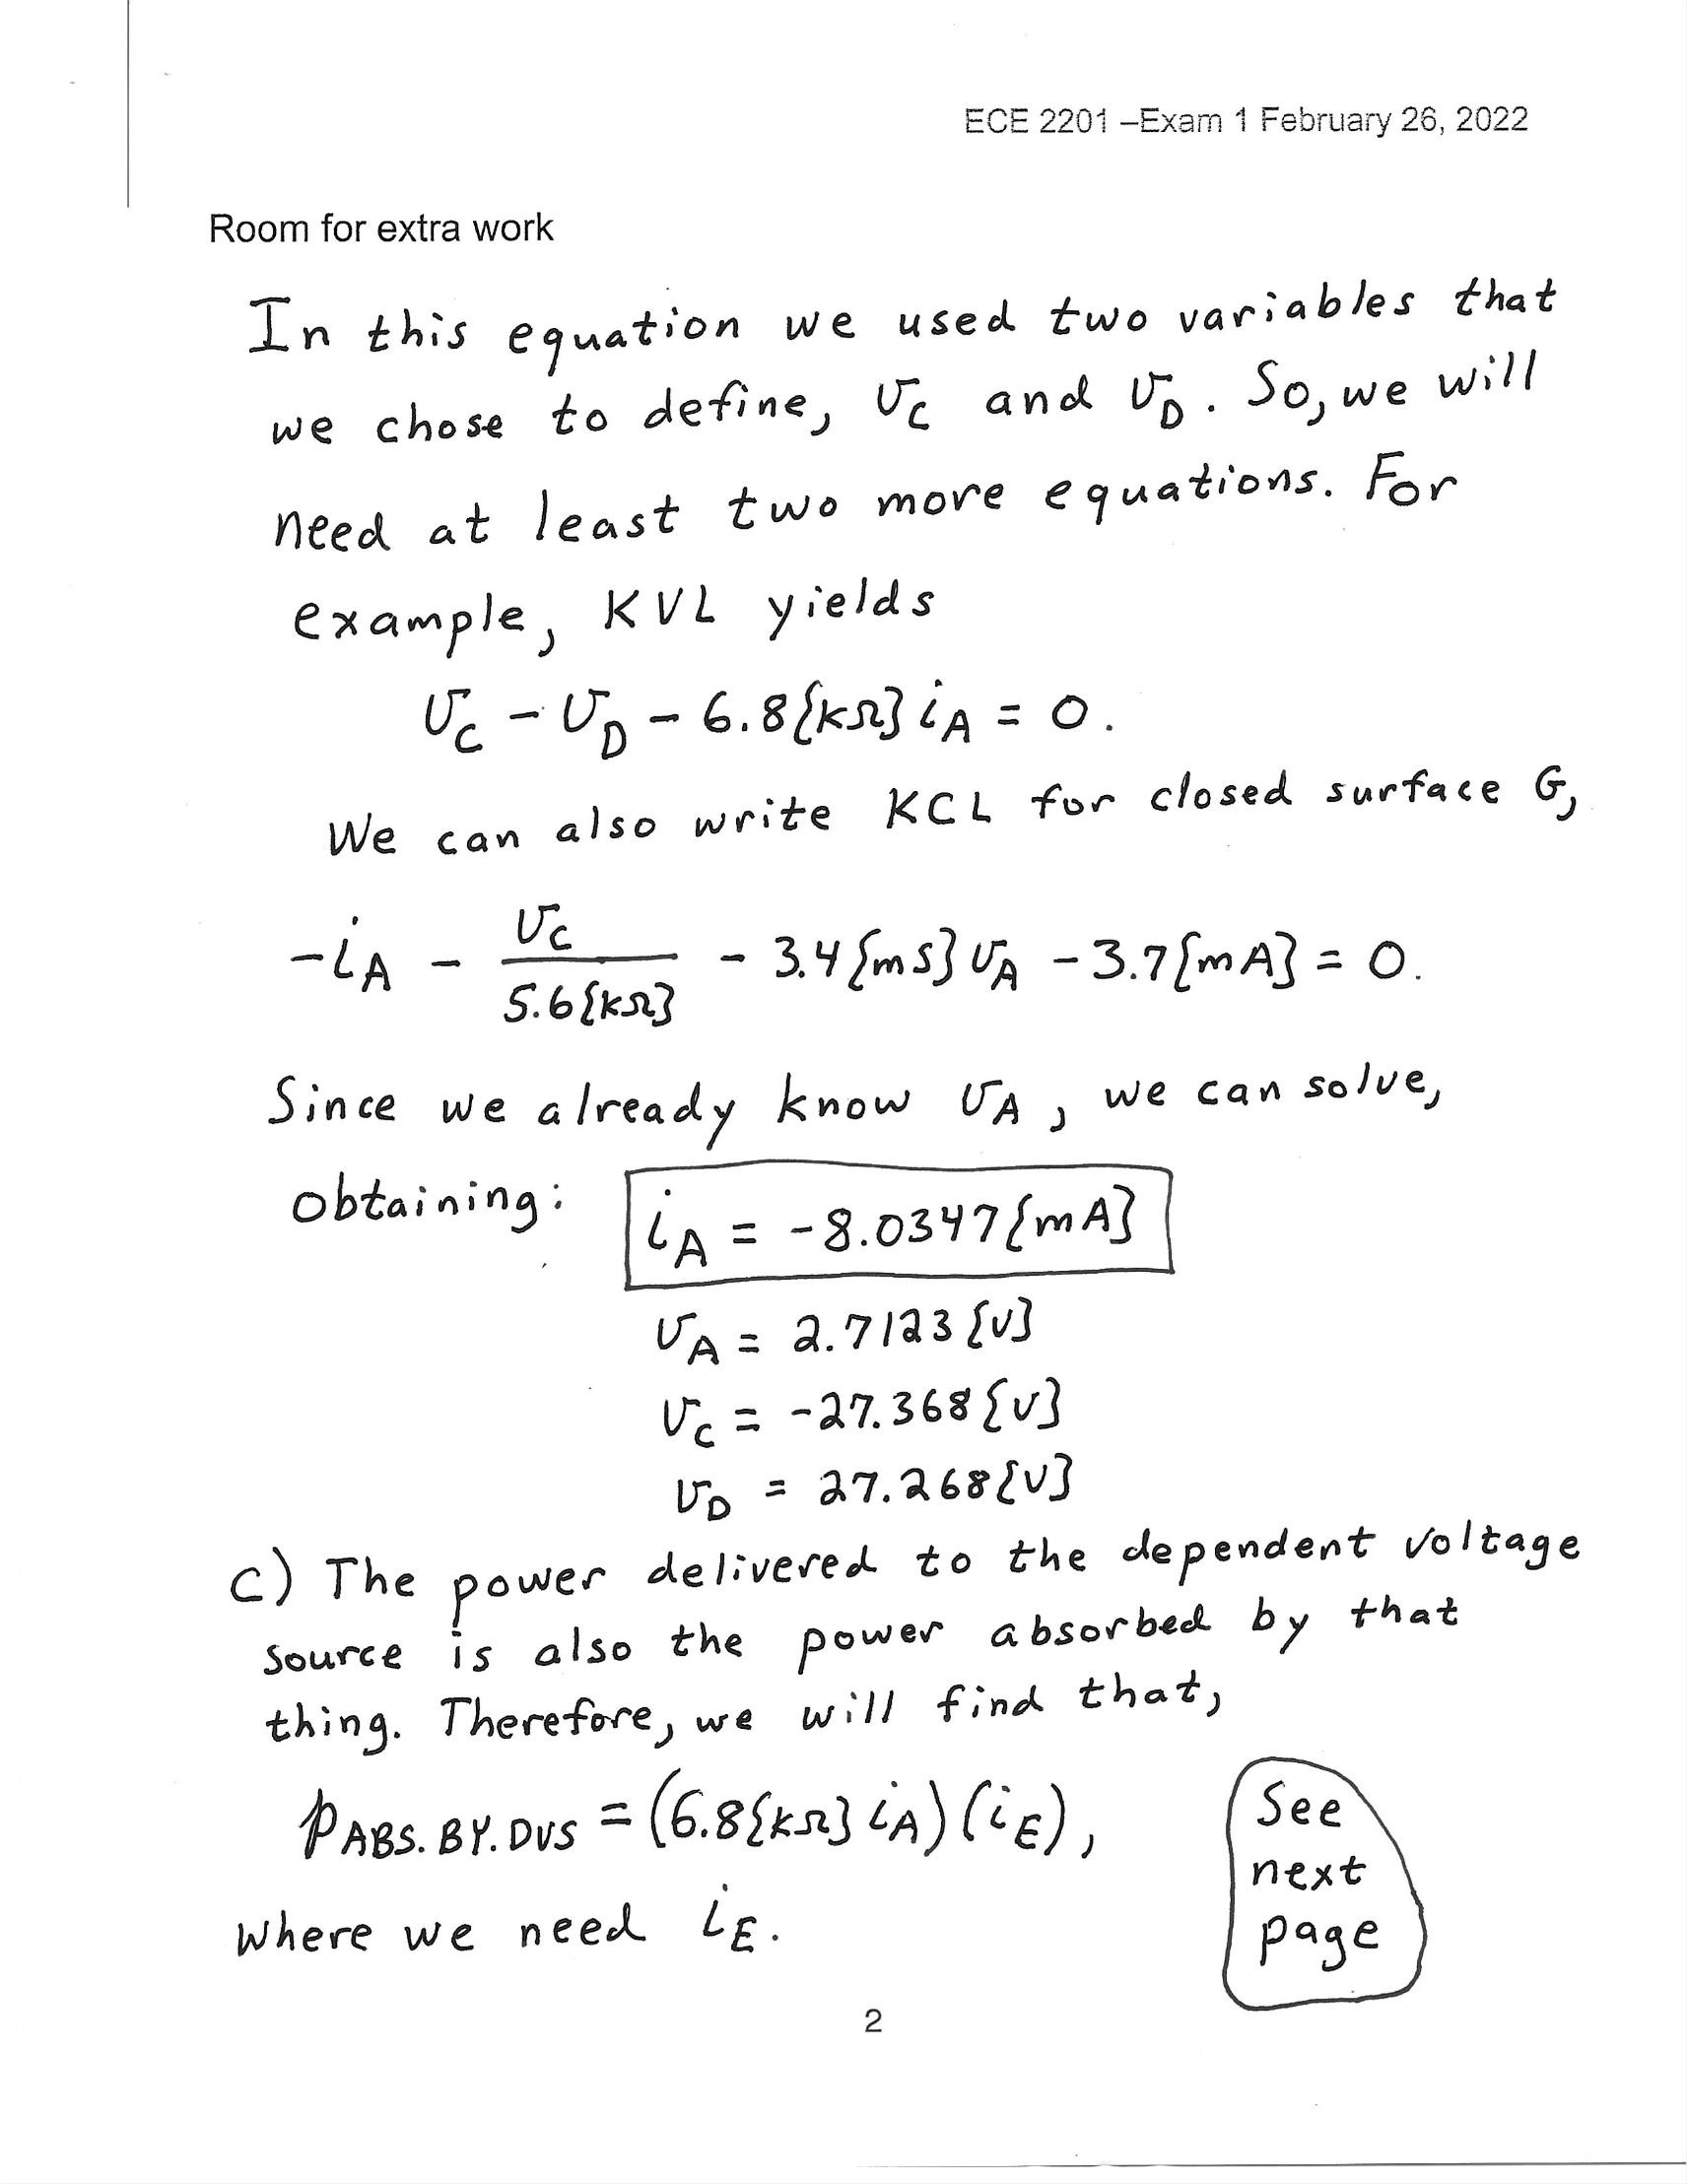 ECE 2201 –Exam 1 February 26, 2022
Room for extra work
In this equation we used two variables that
we chose to define, v_C and v_D. So, we will
need at least two more equations. For
example, KVL yields
v_C - v_D - 6.8{kΩ} i_A = 0.
We can also write KCL for closed surface G,
-i_A - v_C / 5.6{kΩ} - 3.4{mS} v_A - 3.7{mA} = 0.
Since we already know v_A, we can solve,
obtaining: i_A = -8.0347{mA}
v_A = 2.7123{V}
v_C = -27.368{V}
v_D = 27.268{V}
c) The power delivered to the dependent voltage
source is also the power absorbed by that
thing. Therefore, we will find that,
p_ABS.BY.DVS = (6.8{kΩ} i_A)(i_E),
where we need i_E.
See
next
page
2